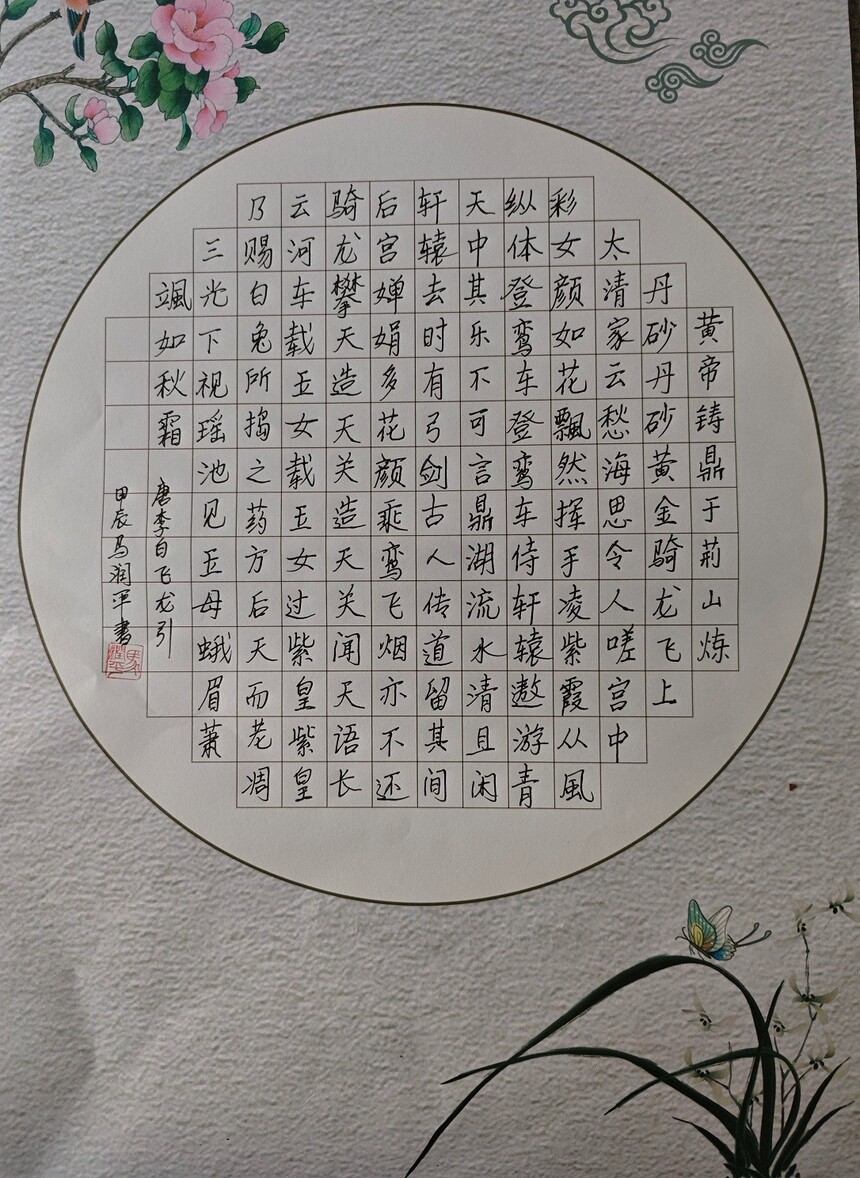 黄帝铸鼎于荆山炼
丹砂丹砂黄金骑龙飞上
太清家云愁海思令人嗟宫中
彩女颜如花飄然挥手凌紫霞从風
纵体登鸾车登鸾车侍轩辕遨游青
天中其乐不可言鼎湖流水清且闲
轩辕去时有弓剑古人传道留其间
后宫婵娟多花颜乘鸾飞烟亦不还
骑龙攀天造天关造天关闻天语长
云河车载玉女载玉女过紫皇紫皇
乃赐白兔所捣之药方后天而老凋
三光下视瑶池见王母蛾眉萧
颯如秋霜
唐李白飞龙引
甲辰马润军書